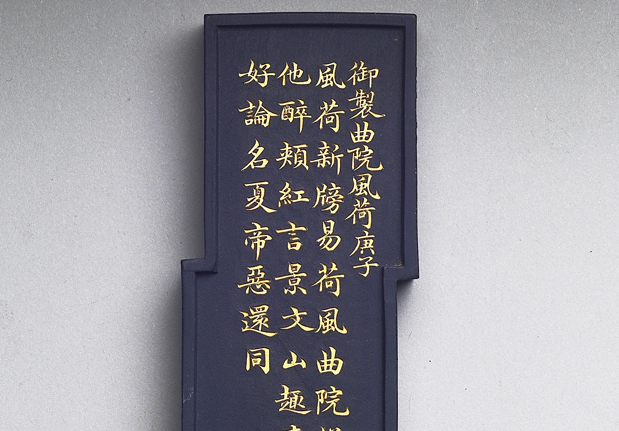 御製曲院風荷庚子
風荷新牓易荷風曲院
他醉頰紅言景文山趣
好論名夏帝惡還同